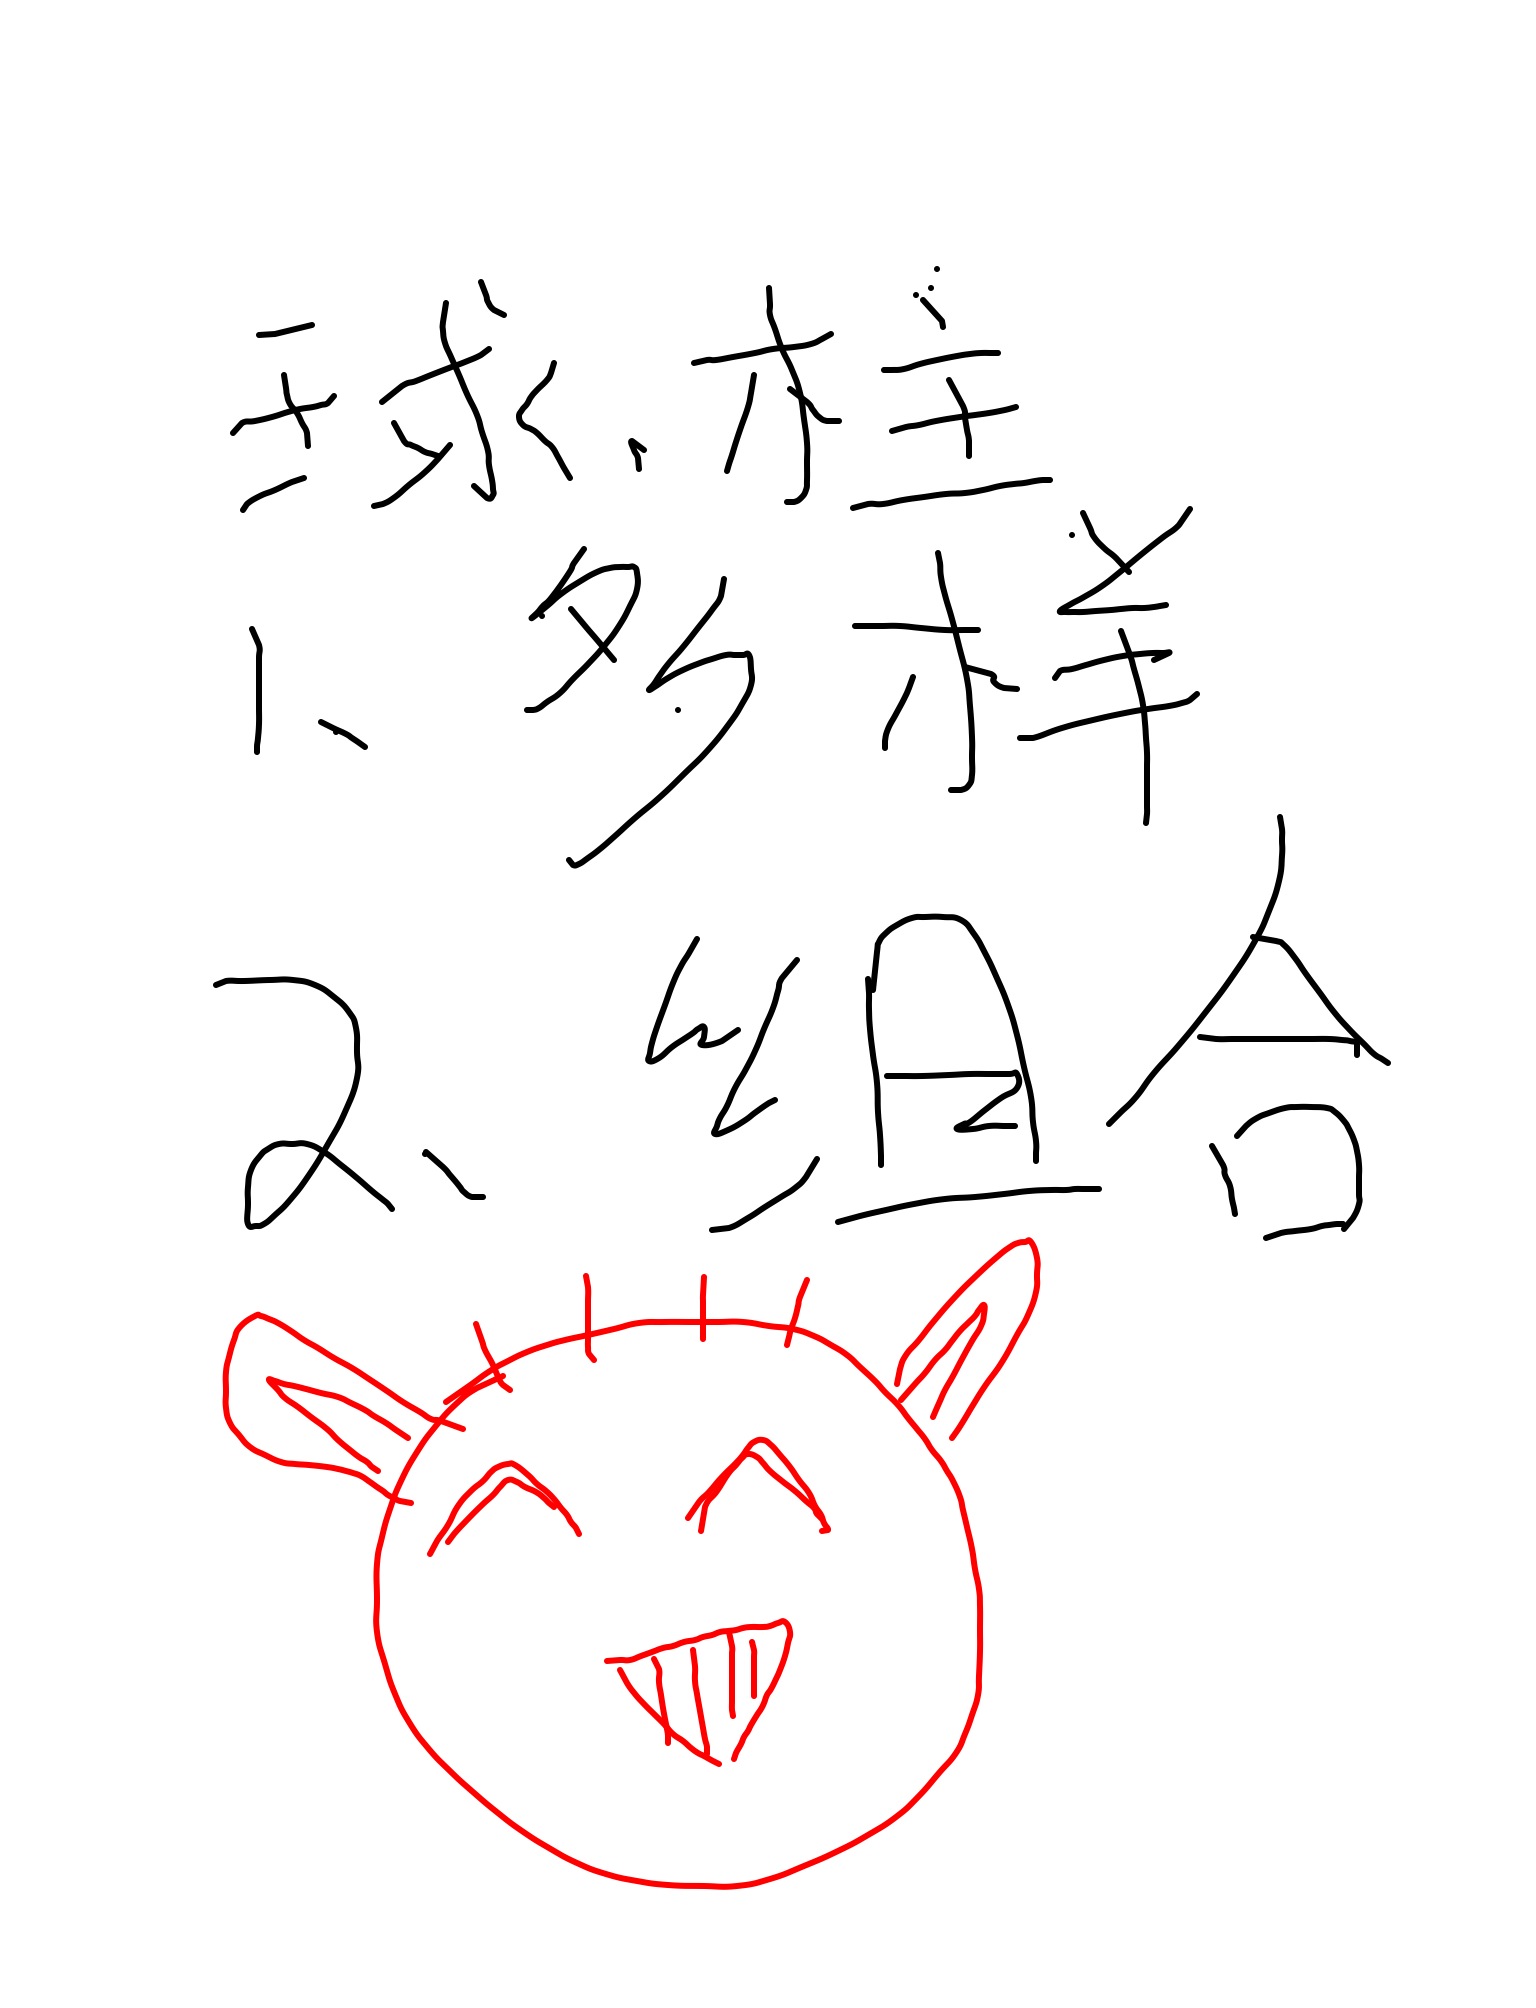 球、柱
1、多样
2、组合